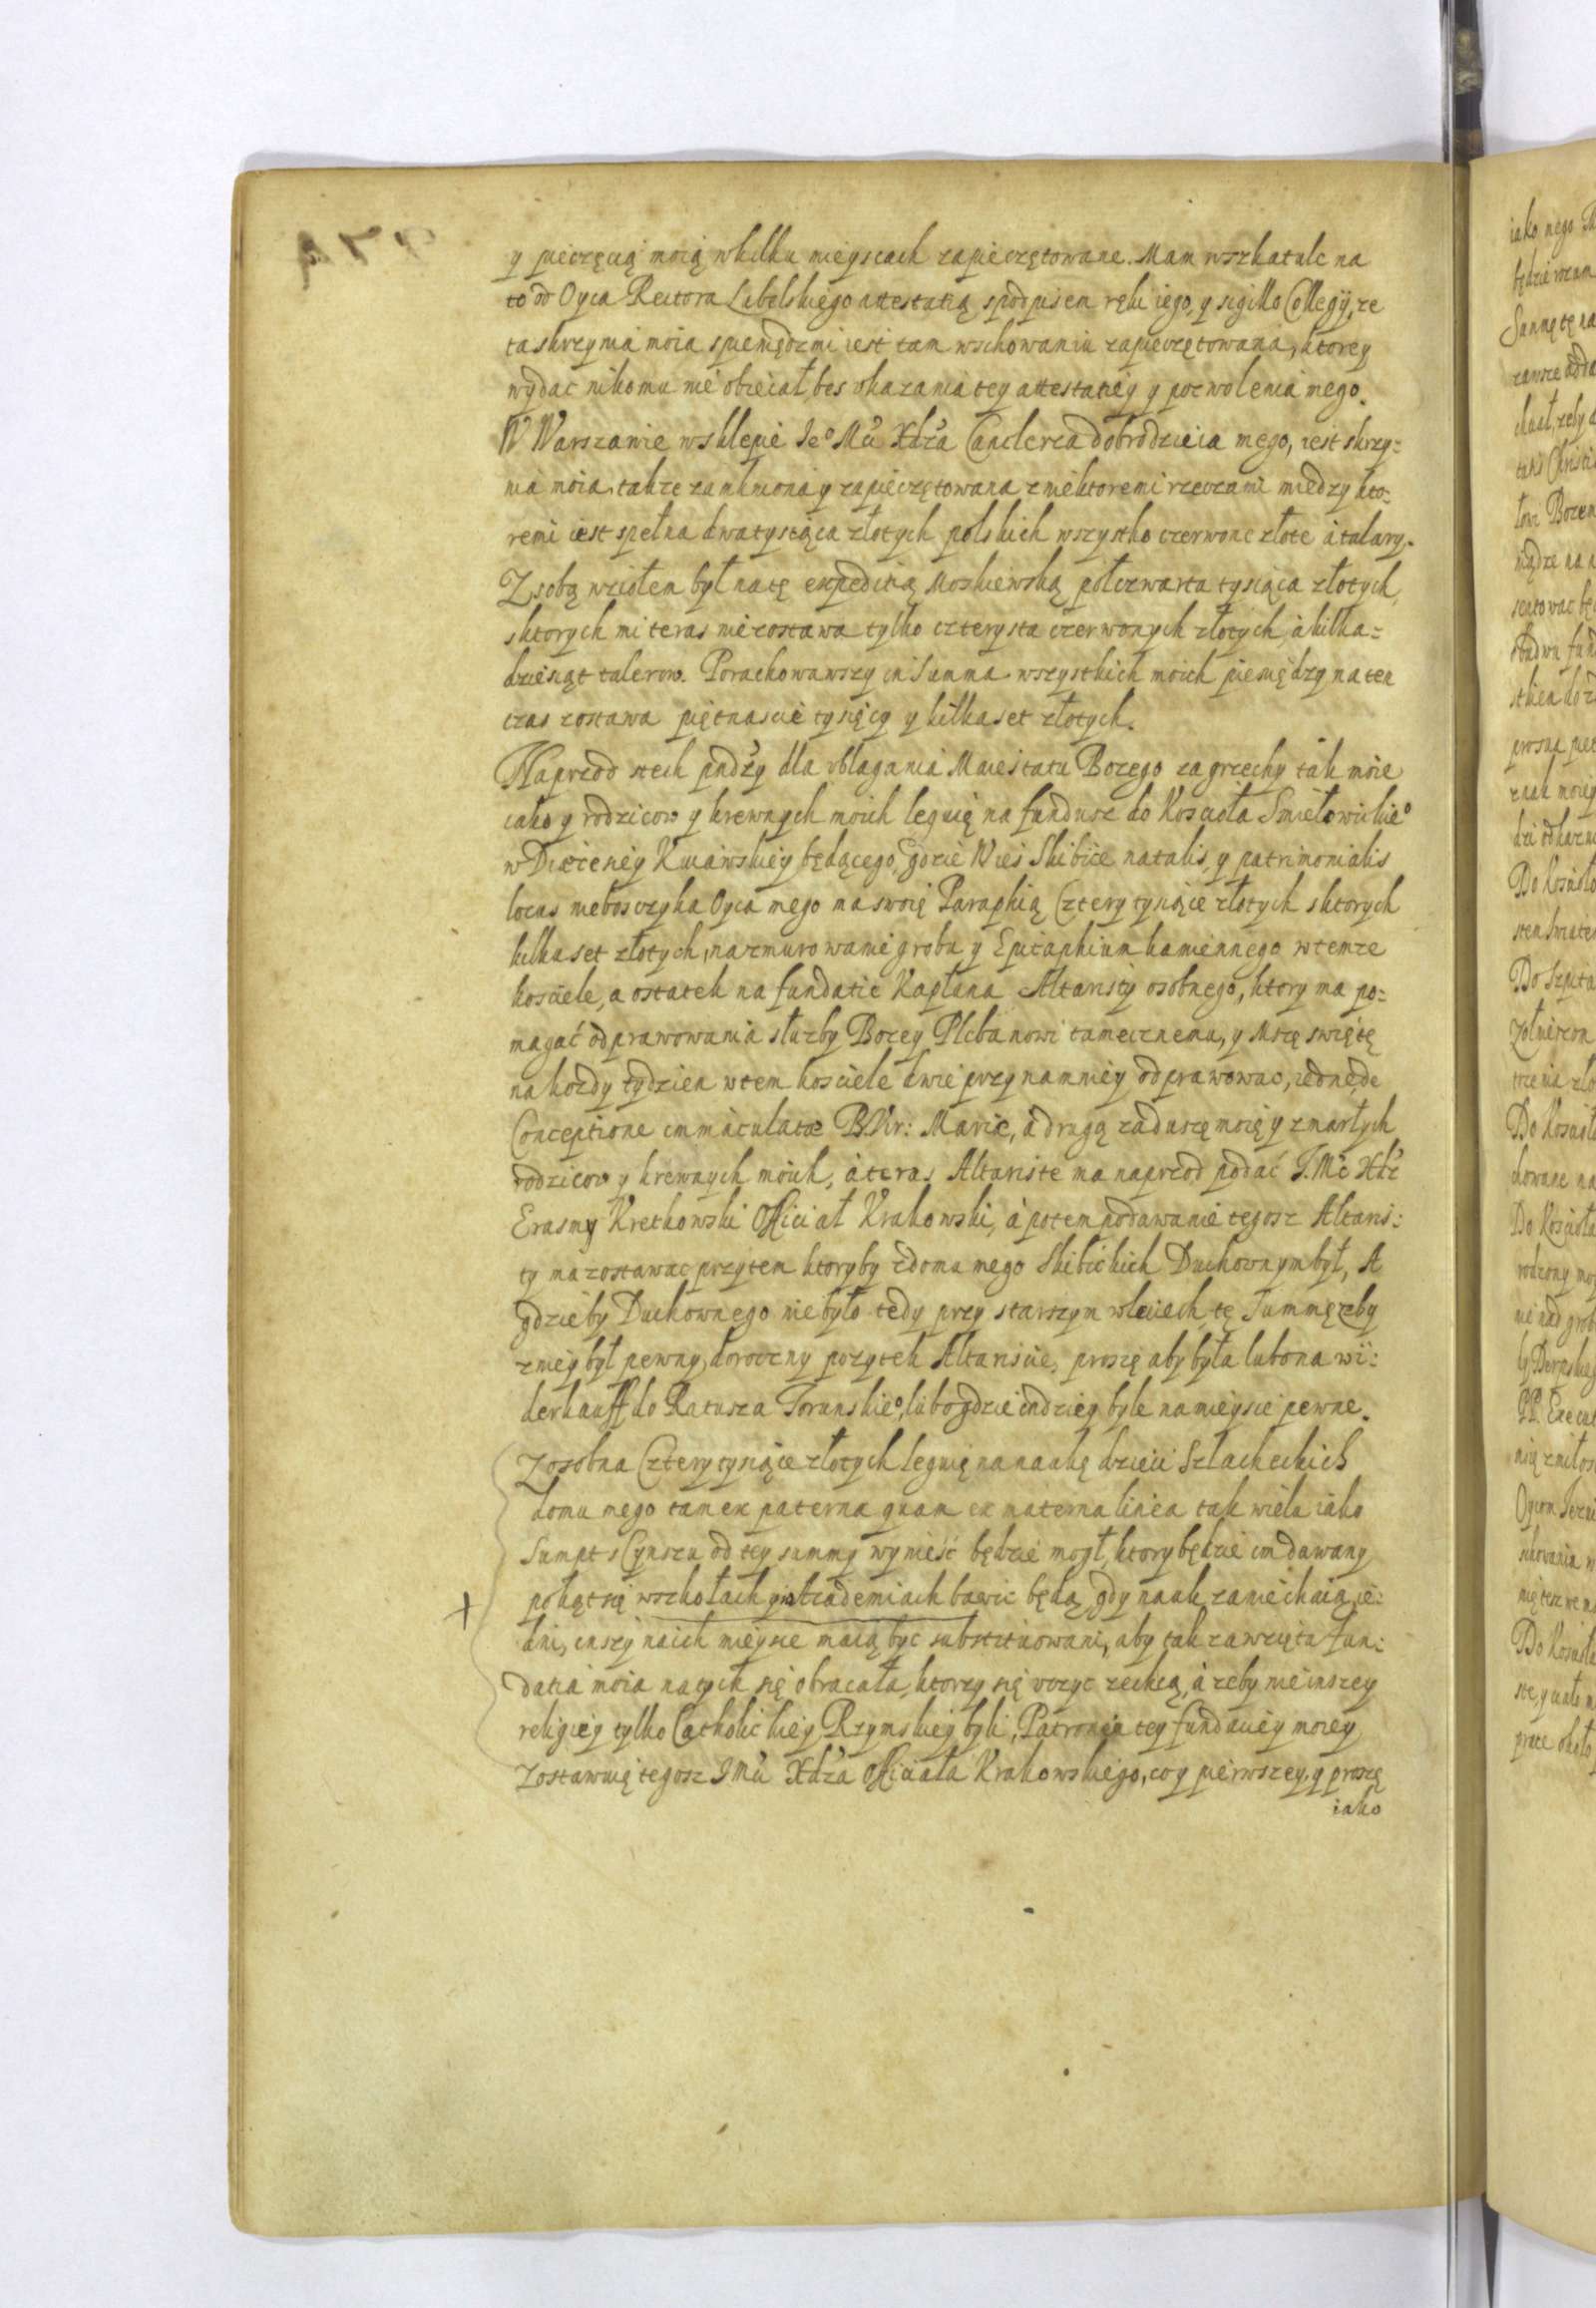 y pieczęcią moią wkilku mieyscach zapieczętowane. Mam wszkatule na
to od Oyca Rectora Lubelskiego attestatią spodpisem ręki iego, y sigillo Collegÿ, ze
ta skrzynia moia spieniędzmi iest tam wschowaniu zapieczętowana, ktorey
wydac nikomu nie obiecał, bes okazania tey attestatiey y pozwolenia mego.
W Warszawie wsklepie Ieº Mći Xdza Canclerza dobrodzieia mego, iest skrzy=
nia moia, takze zamkniona y zapieczętowana z niektoremi rzeczami miedzy kto=
remi iest spełna dwa tysiąca złotych polskich wszystko czerwone złote à talary.
Z sobą wziołem był na tę expeditią Moskiewską połczwarta tysiąca złotych,
sktorych mi teras nie zostawa tylko czterysta czerwonych złotych, à kilka=
dziesiąt talerow. Porachowawszy in Summa wszystkich moich pieniędzy na ten
czas zostawa piętnascie tysięcy y kilkaset złotych.
Naprzod stech pndzy dla vblagania Maiestatu Bozego za grzechy tak moie
iako y rodzicow y krewnych moich leguię na fundusz do Kosciola Smiełowickieº
w Diœceziey Kuiawskiey będącego, gdzie Wieś Skibice natalis, y patrimonialis
locus nieboszczyka Oyca mego ma swoię Paraphią Cztery tysiące złotych sktorych
kilkaset złotych, na zmurowanie grobu y Epitaphium kamiennego wtemze
kosciele, a ostatek na fundatie Kapłana Altaristy osobnego, ktory ma po=
magać odprawowania słuzby Bozey Plebanowi tamecznemu, y Mszę swiętę
na kozdy tydzien wtem kosciele dwie przynamniey odprawowac, iednę de
Conceptione immaculatæ B. Vir: Mariæ, à drugą za duszę moię y zmarłych
rodzicow y krewnych moich, à teras Altariste ma naprzod podać I. Mć Xdz
Erasmy Kretkowski Officiał Krakowski, à potem podawanie tegosz Altaris=
ty ma zostawac przytem ktoryby zdomu mego Skibickich Duchownym był, A
gdzieby Duchownego nie było tedy przy starszym wleciech, tę Summę zeby
zniey był pewny, doroczny pozytek Altariscie, proszę aby była lubo na wi=
derkauff do Ratusza Torunskieº, lubo gdzie indziey byle na mieysce pewne.
Zosobna Cztery tysiące złotych leguię na naukę dzieci Szlacheckich
domu mego tam ex paterna quam ex materna linea tak wielu iako
Sumpt s Cynszu od tey summy wynieść będzie mogł, ktory będzie im dawany
pokąt się wszkołach y w Academiach bawic będą, gdy nauk zaniechaią ie=
dni, inszy na ich mieysce maią byc substituowani, aby tak zawzięta fun=
datia moia na tych się obracała, ktorzy się vczyc zechcą, à zeby nie inszey
religiey tylko Catholickiey Rzymskiey byli, Patronem tey fundaciey moiey
zostawuię tegosz I Mći Xdza Officiała Krakowskiego, co y pierwszey, y proszę
iako